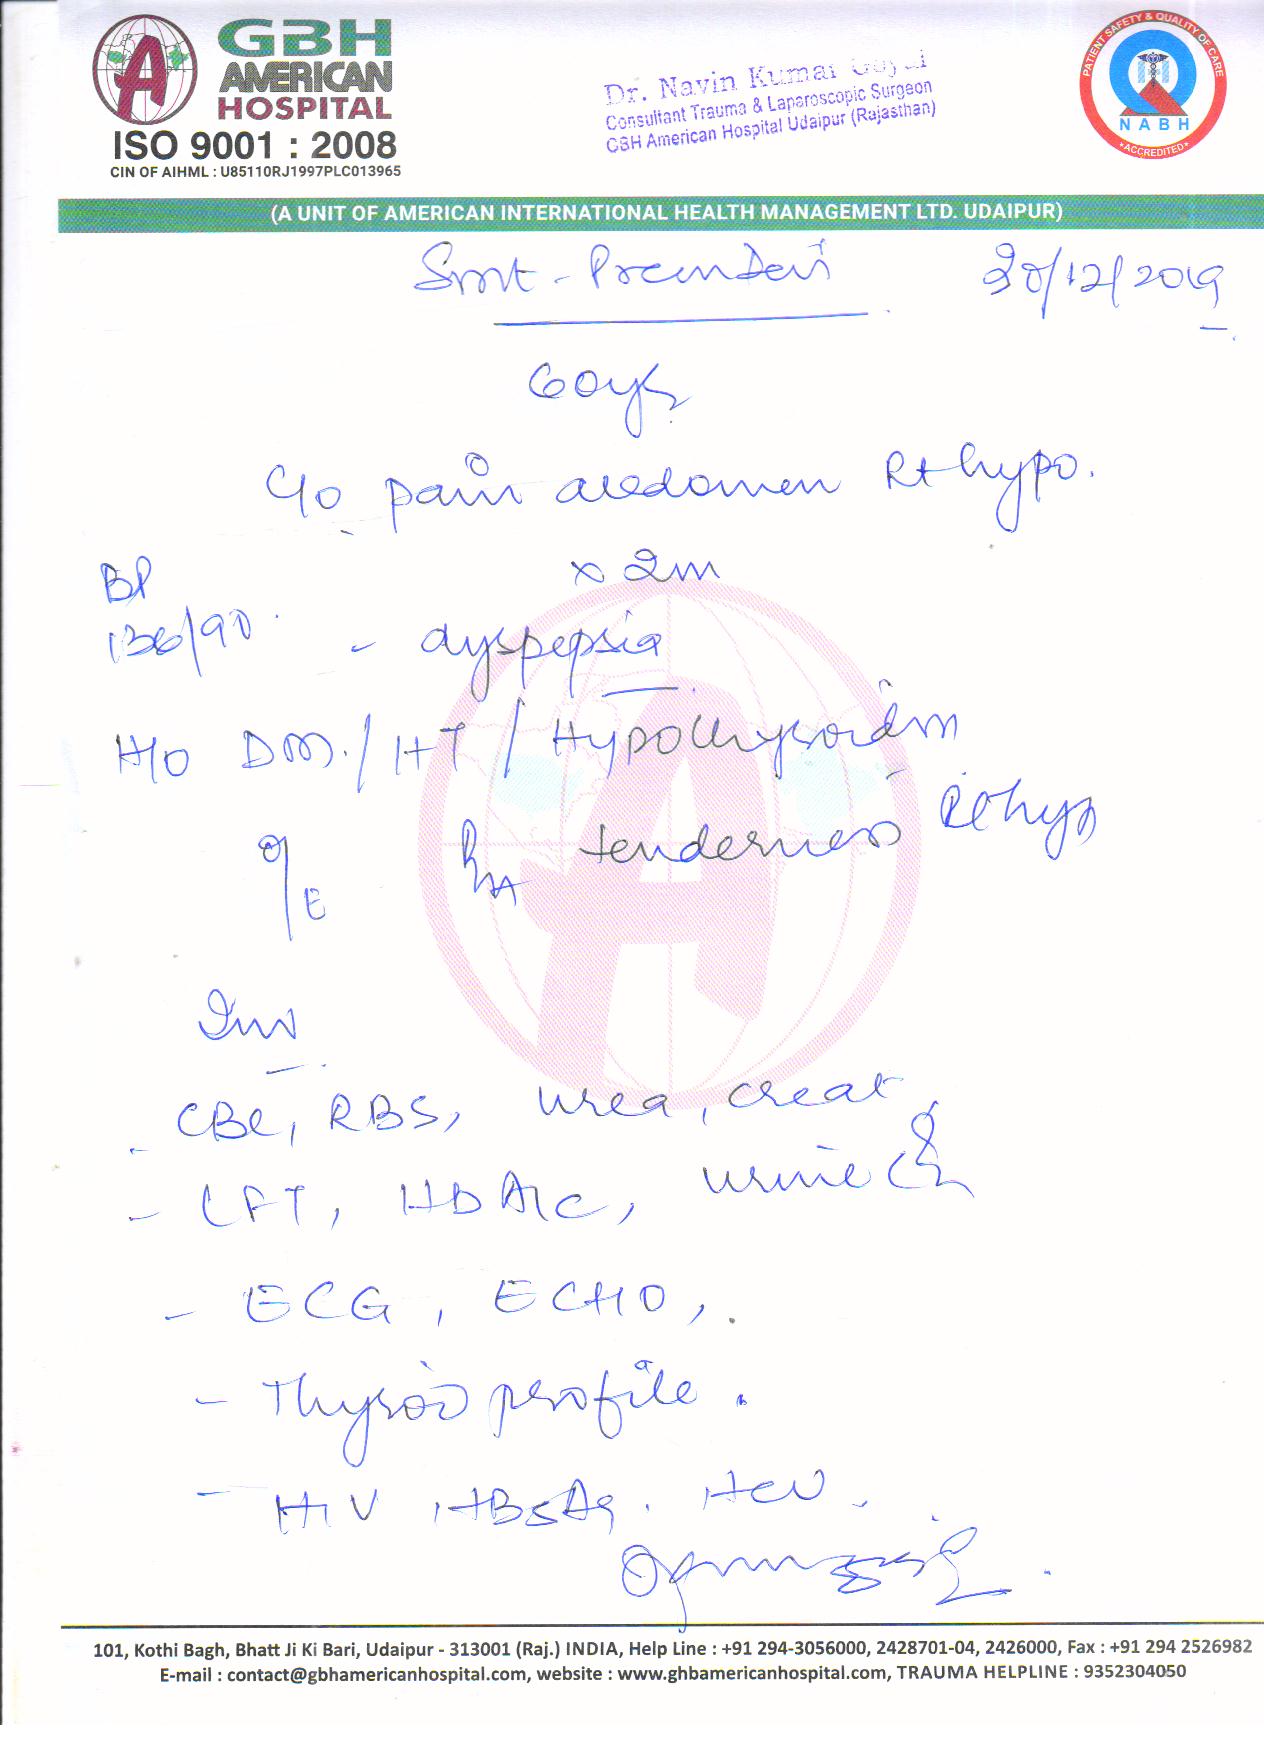 GBH
AMERICAN
HOSPITAL
ISO 9001 : 2008
CIN OF AIHML : U85110RJ1997PLC013965
Dr. Navin Kumar Goyal
Consultant Trauma & Laparoscopic Surgeon
GBH American Hospital Udaipur (Rajasthan)
PATIENT SAFETY & QUALITY OF CARE
NABH
ACCREDITED
(A UNIT OF AMERICAN INTERNATIONAL HEALTH MANAGEMENT LTD. UDAIPUR)
Smt - Prem Devi 30/12/2019
60y
C/o pain abdomen Rt hypo.
BP × 2m
136/90. - dyspepsia
H/o DM./HT/Hypothyroidism
O/E P/A tenderness Rt hyp
Inv
- CBC, RBS, urea, creat
- LFT, HbA1c, urine
- ECG, ECHO,
- Thyroid profile.
- HIV HBsAg. HCV.
101, Kothi Bagh, Bhatt Ji Ki Bari, Udaipur - 313001 (Raj.) INDIA, Help Line : +91 294-3056000, 2428701-04, 2426000, Fax : +91 294 2526982
E-mail : contact@gbhamericanhospital.com, website : www.ghbamericanhospital.com, TRAUMA HELPLINE : 9352304050